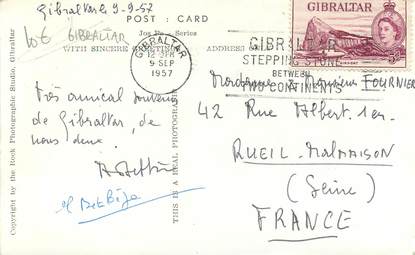 Gibraltar le 9-9-57
POST : CARD
GIBRALTAR
WITH SINCERE GREETINGS
ADDRESS
GIBRALTAR
9 SEP
1957
GIBRALTAR
STEPPING STONE
BETWEEN
TWO CONTINENTS
GIBRALTAR
Très amical souvenir
de Gibraltar, de
nous deux.
Madame & Monsieur FOURNIER
42 Rue Albert 1er
RUEIL-MALMAISON
(Seine)
FRANCE
THIS IS A REAL PHOTOGRAPH
Copyright by the Rock Photographic Studio, Gibraltar